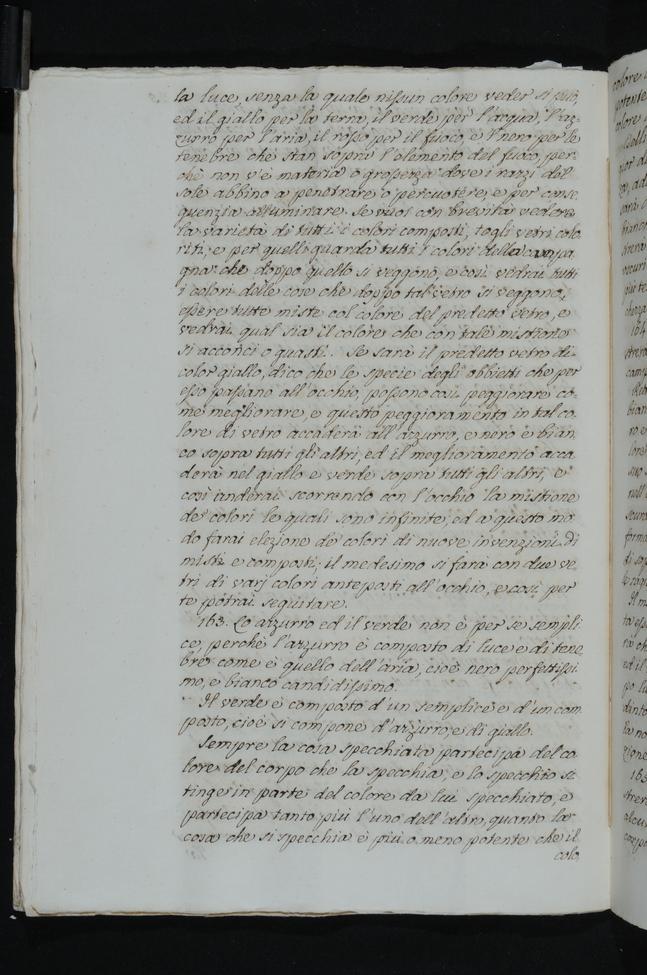 la luce, senza la quale nissun colore veder si può,
ed il giallo per la terra, il verde per l'acqua, l'az-
zurro per l'aria, il rosso per il fuoco, e il nero per le
tenebre che stan sopra l'elemento del fuoco, per-
chè non v'è materia o grossezza dove i razzi del
sole abbino a penetrare o percuotere, e per conse
quenzia alluminare. Se vuoi con brevità vedere
la varietà di tutti i colori composti, togli vetri colo
riti, e per quelli guarda tutti i colori della campa
gna che doppo quello si veggono, e così vedrai tutti
i colori delle cose che doppo tal vetro si veggono,
essere tutte miste col colore del predetto vetro, e
vedrai qual sia il colore che con tale mistione
si acconci o guasti. Se sarà il predetto vetro di
color giallo, dico che le specie degli obbietti che per
esso passano all'occhio, possono così peggiorare co-
me megliorare, e questo peggioramento in tal co
lore di vetro accaderà all'azzurro, e nero e bian
co sopra tutti gli altri, ed il meglioramento acca
derà nel giallo e verde sopra tutti gli altri, e
così anderai scorrendo con l'occhio la mistione
de' colori le quali sono infinite, ed a questo mo
do farai elezione de' colori di nuove invenzioni di
misti e composti; il medesimo si farà con due ve
tri di varj colori anteposti all'occhio, e così per
te potrai seguitare.
163. Lo azzurro ed il verde non è per se sempli
ce, perchè l'azzurro è composto di luce e di tene
bre come è quello dell'aria, cioè nero perfettissi
mo, e bianco candidissimo.
Il verde è composto d'un semplice e d'un com
posto, cioè si compone d'azzurro, e di giallo.
Sempre la cosa specchiata partecipa del co
lore del corpo che la specchia, e lo specchio si
tinge in parte del colore da lui specchiato, e
partecipa tanto più l'uno dell'altro, quanto la
cosa che si specchia è più o meno potente che il
colo